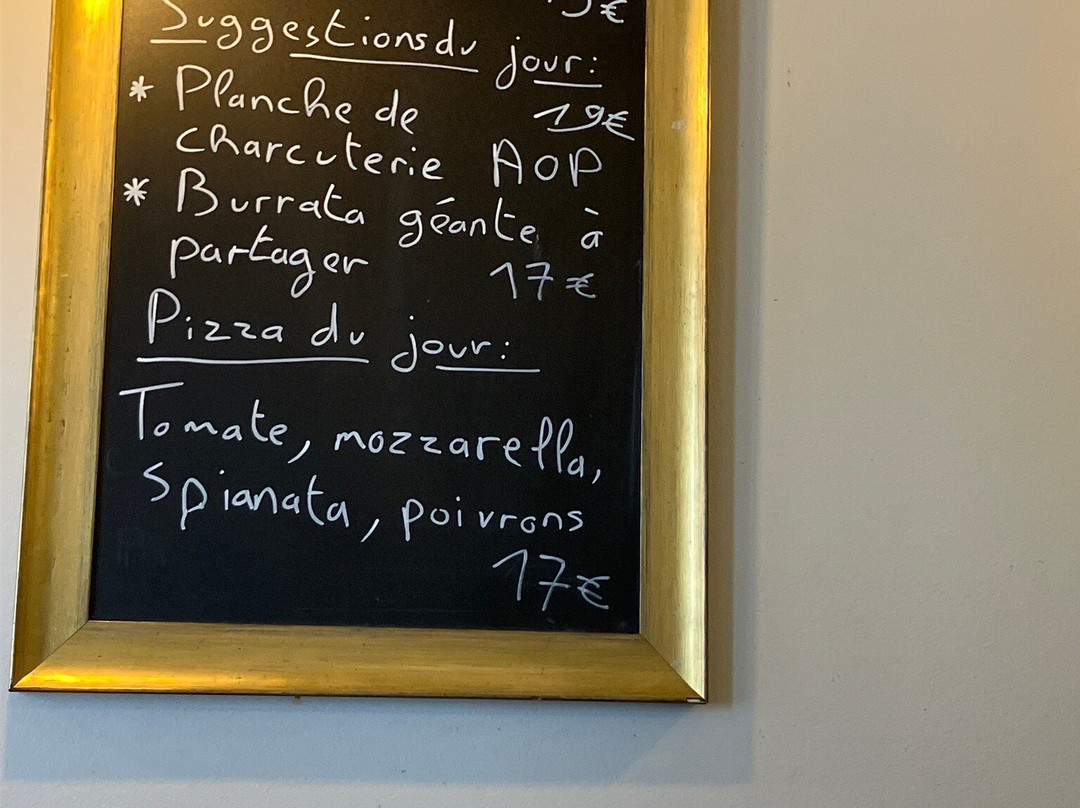 Suggestions du jour:
* Planche de 19€
charcuterie AOP
* Burrata géante à
partager 17€
Pizza du jour:
Tomate, mozzarella,
Spianata, poivrons
17€